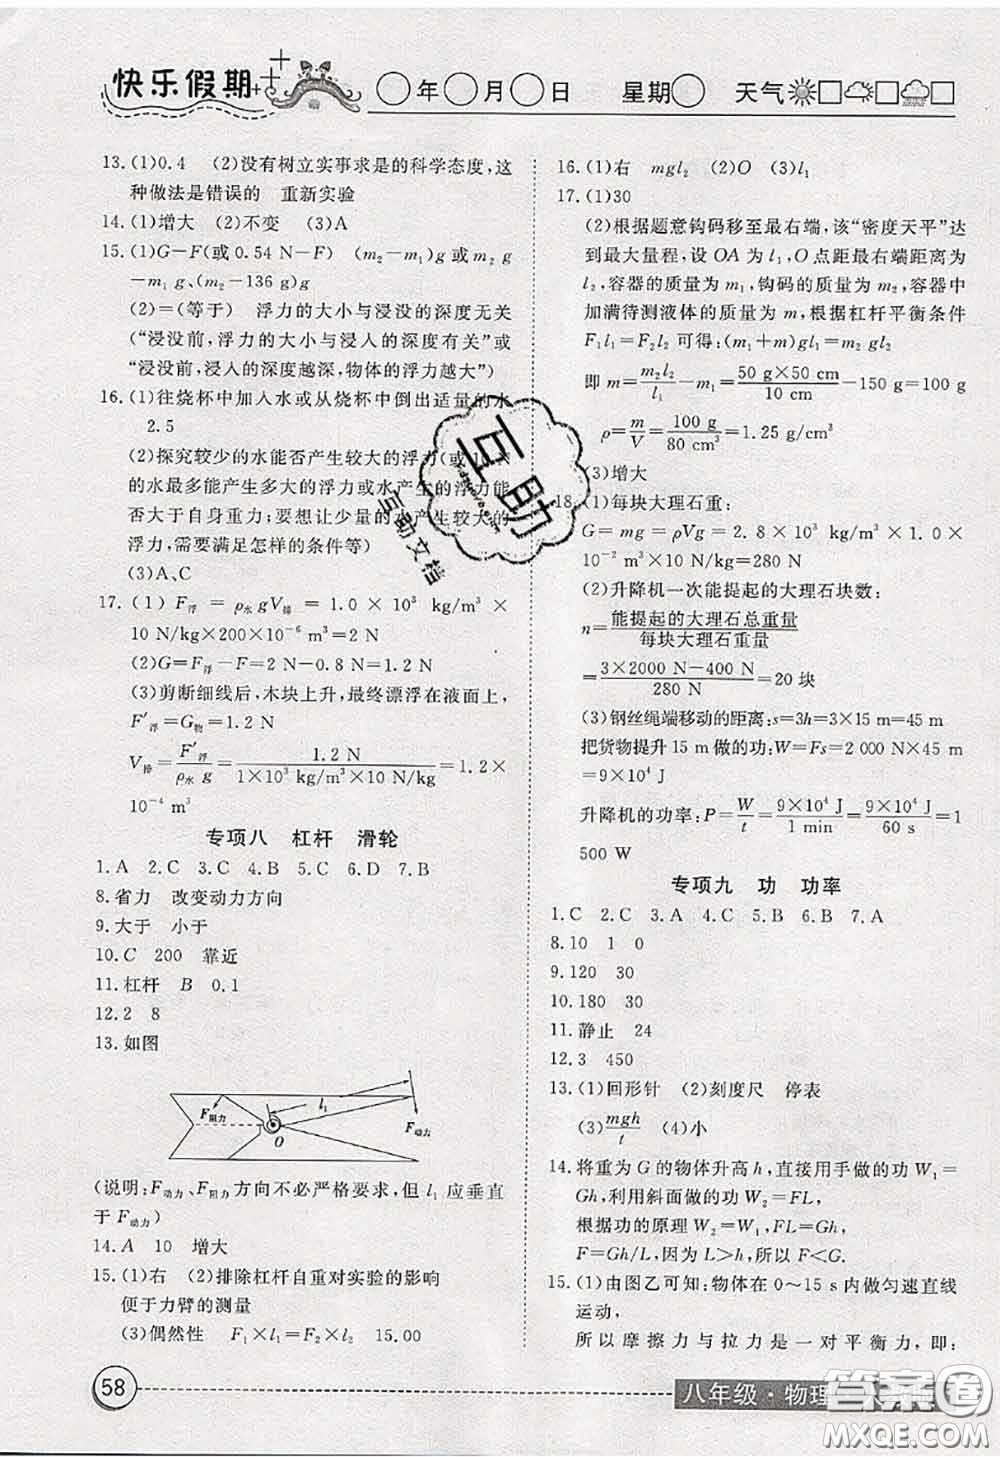 快乐假期
年 月 日 星期 天气
13.(1)0.4 (2)没有树立实事求是的科学态度,这
种做法是错误的 重新实验
14.(1)增大 (2)不变 (3)A
15.(1)G-F(或0.54 N-F) (m₂-m₁)g或m₂ g
-m₁g、(m₂-136 g)g
(2)=(等于) 浮力的大小与浸没的深度无关
(“浸没前,浮力的大小与浸入的深度有关”或
“浸没前,浸入的深度越深,物体的浮力越大”)
16.(1)往烧杯中加入水或从烧杯中倒出适量的水
2.5
(2)探究较少的水能否产生较大的浮力(或10 N
的水最多能产生多大的浮力或水产生的浮力能
否大于自身重力;要想让少量的水产生较大的
浮力,需要满足怎样的条件等)
(3)A、C
17.(1) F浮 = ρ水 gV排 = 1.0 × 10³ kg/m³ ×
10 N/kg×200×10⁻⁶ m³=2 N
(2)G=F浮-F=2 N-0.8 N=1.2 N
(3)剪断细线后,木块上升,最终漂浮在液面上,
F′浮=G物=1.2 N
V排=F′浮/ρ水 g=1.2 N/1×10³ kg/m³×10 N/kg=1.2×
10⁻⁴ m³
专项八 杠杆 滑轮
1.A 2.C 3.C 4.B 5.C 6.D 7.B
8.省力 改变动力方向
9.大于 小于
10.C 200 靠近
11.杠杆 B 0.1
12.2 8
13.如图
F阻力 l₁ O F动力
(说明:F动力、F阻力方向不必严格要求,但 l₁ 应垂直
于 F动力)
14.A 10 增大
15.(1)右 (2)排除杠杆自重对实验的影响
便于力臂的测量
(3)偶然性 F₁×l₁=F₂×l₂ 15.00
58
16.(1)右 mgl₂ (2)O (3)l₁
17.(1)30
(2)根据题意钩码移至最右端,该“密度天平”达
到最大量程,设 OA 为 l₁,O 点距最右端距离为
l₂,容器的质量为 m₁,钩码的质量为 m₂,容器中
加满待测液体的质量为 m,根据杠杆平衡条件
F₁l₁=F₂l₂ 可得:(m₁+m)gl₁=m₂gl₂
即 m=m₂l₂/l₁-m₁=50 g×50 cm/10 cm-150 g=100 g
ρ=m/V=100 g/80 cm³=1.25 g/cm³
(3)增大
18.(1)每块大理石重:
G = mg = ρVg = 2.8 × 10³ kg/m³ × 1.0 ×
10⁻² m³×10 N/kg=280 N
(2)升降机一次能提起的大理石块数:
n=能提起的大理石总重量/每块大理石重量
=3×2000 N-400 N/280 N=20 块
(3)钢丝绳端移动的距离:s=3h=3×15 m=45 m
把货物提升 15 m 做的功:W=Fs=2 000 N×45 m
=9×10⁴ J
升降机的功率:P=W/t=9×10⁴ J/1 min=9×10⁴ J/60 s=1
500 W
专项九 功 功率
1.C 2.C 3.A 4.C 5.B 6.B 7.A
8.10 1 0
9.120 30
10.180 30
11.静止 24
12.3 450
13.(1)回形针 (2)刻度尺 停表
(3)mgh/t (4)小
14.将重为 G 的物体升高 h,直接用手做的功 W₁=
Gh,利用斜面做的功 W₂=FL,
根据功的原理 W₂=W₁,FL=Gh,
F=Gh/L,因为 L>h,所以 F<G.
15.(1)由图乙可知:物体在 0～15 s 内做匀速直线
运动,
所以摩擦力与拉力是一对平衡力,即:
八年级·物理
互助
互助文档
答案卷
MXQE.COM